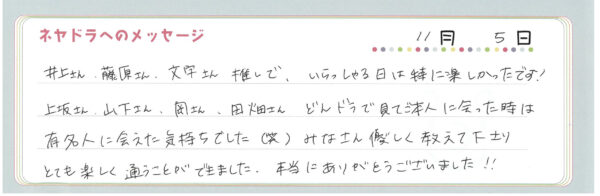 ネヤドラへのメッセージ
11月 5日
井上さん、藤原さん、文字さん 推しで、いらっしゃる日は特に楽しかったです!
上坂さん、山下さん、岡さん、田畑さん どんドラで見てご本人に会った時は
有名人に会えた気持ちでした(笑) みなさん優しく教えて下さり
とても楽しく通うことができました。本当にありがとうございました!!